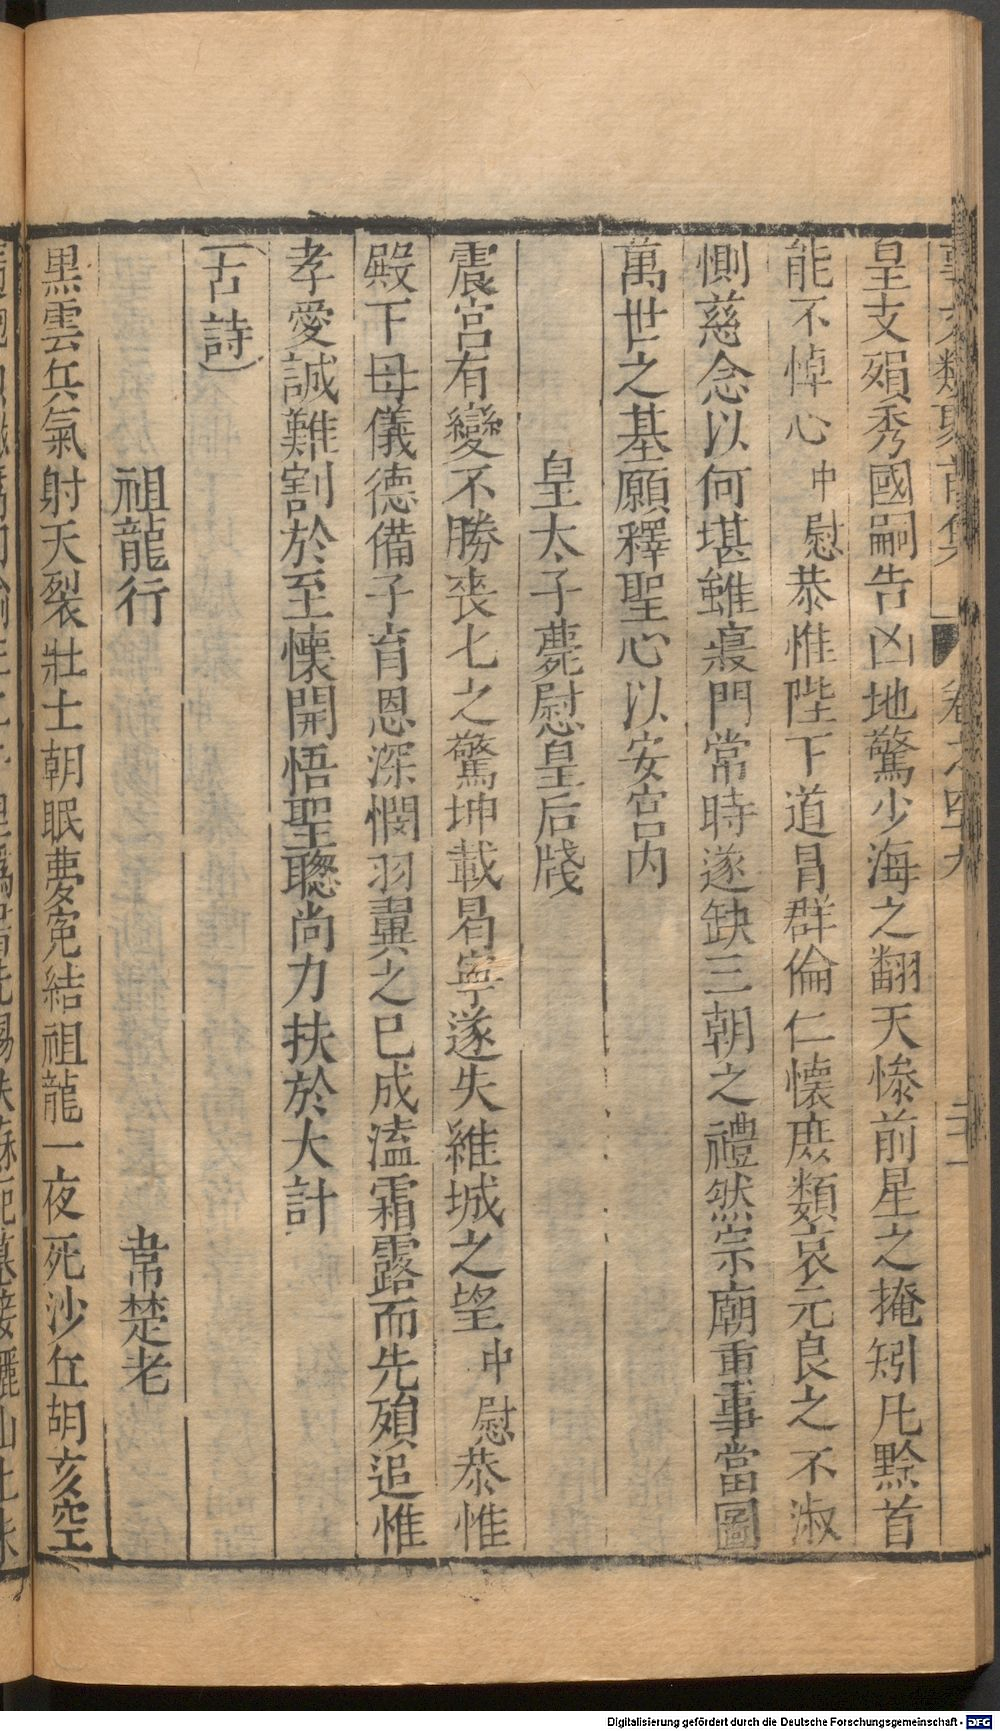 事文類聚前集 卷之四九 二十一
皇支殞秀國嗣告凶地驚少海之翻天慘前星之掩矧凡黔首
能不悼心中慰恭惟陛下道冒群倫仁懷庶類哀元良之不淑
惻慈念以何堪雖寢門常時遂缺三朝之禮然宗廟重事當圖
萬世之基願釋聖心以安宮内
皇太子薨慰皇后牋
震宮有變不勝喪匕之驚坤載曷寧遂失維城之望中慰恭惟
殿下母儀德備子育恩深憫羽翼之已成溘霜露而先殞追惟
孝愛誠難割於至懷開悟聖聰尚力扶於大計
(古詩)
祖龍行 韋楚老
黒雲兵氣射天裂壯士朝眠夢寃結祖龍一夜死沙丘胡亥空
Digitalisierung gefördert durch die Deutsche Forschungsgemeinschaft - DFG